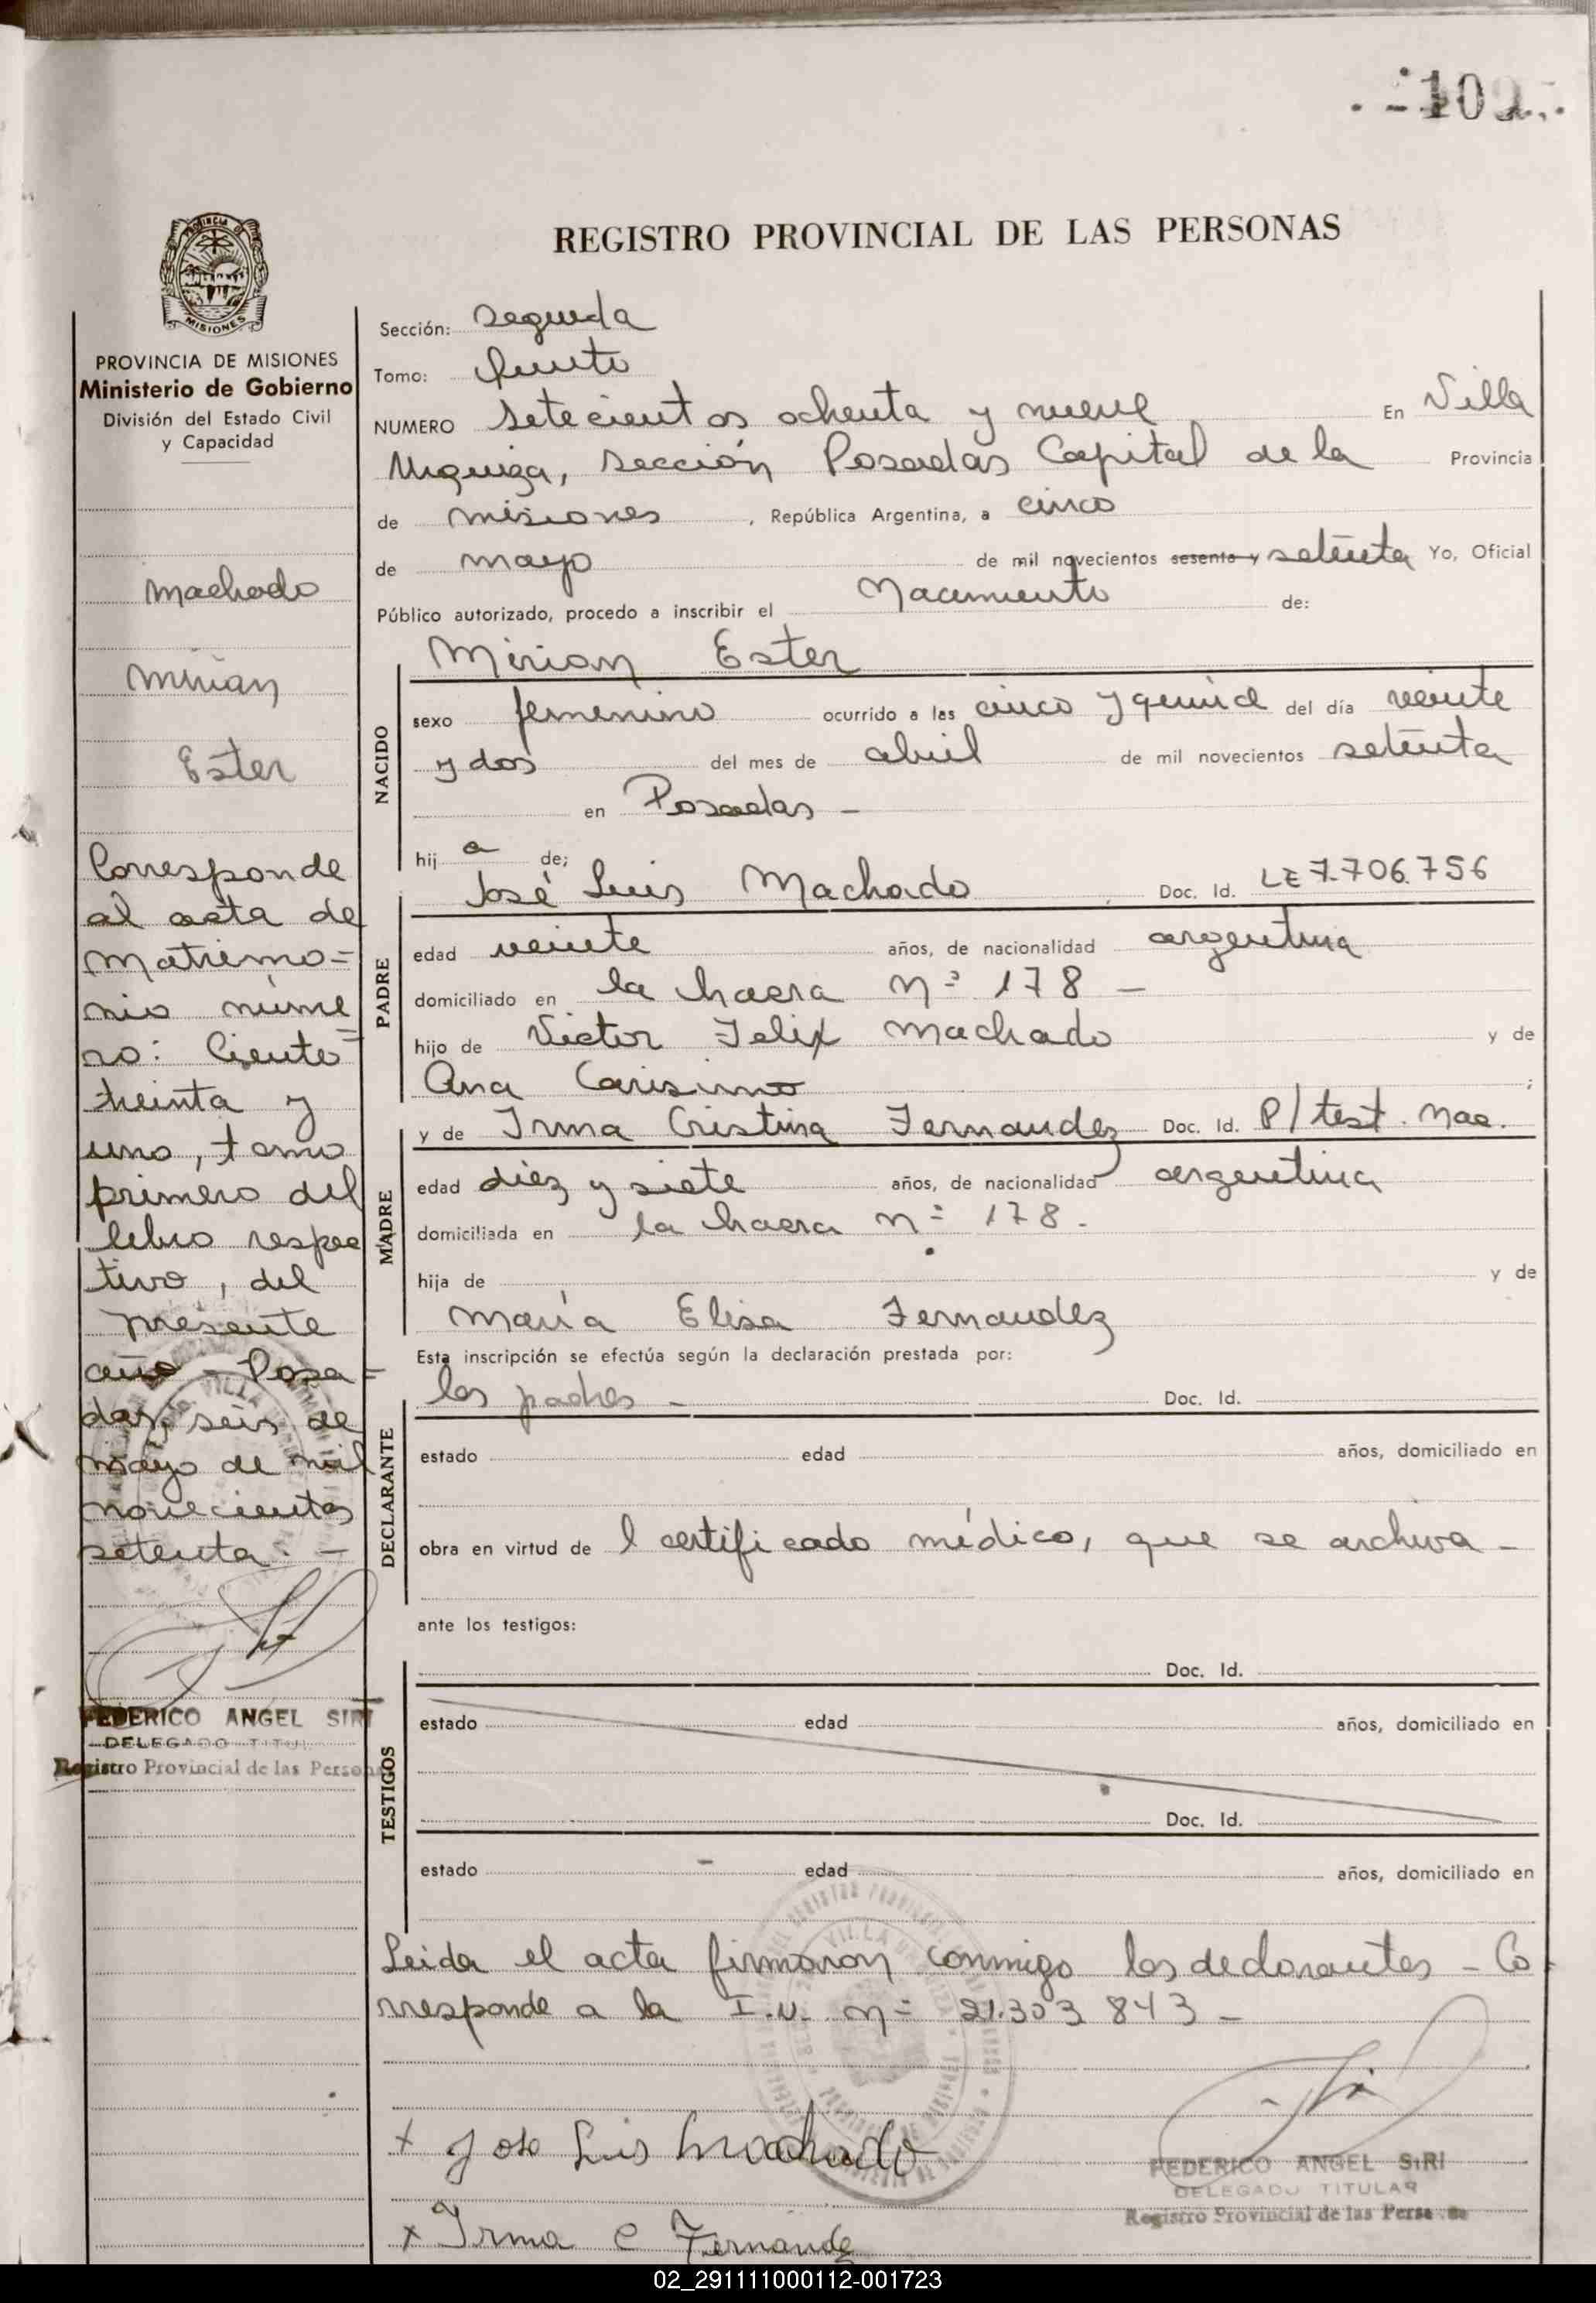 REGISTRO PROVINCIAL DE LAS PERSONAS
MISIONES
PROVINCIA DE MISIONES
Ministerio de Gobierno
División del Estado Civil
y Capacidad
Machado
Mirian
Ester
Corresponde
al acta de
matrimo=
nio núme=
ro: Ciento
treinta y
uno, tomo
primero del
libro respec
tivo, del
presente
año - Posa=
das, seis de
mayo de mil
novecientos
setenta. -
FEDERICO ANGEL SIRI
DELEGADO TITUL
Registro Provincial de las Persona
Sección: Segunda
Tomo: Quinto
NUMERO Setecientos ochenta y nueve En Villa
Urquiza, Sección Posadas Capital de la Provincia
de Misiones, República Argentina, a cinco
de mayo de mil novecientos sesenta y setenta Yo, Oficial
Público autorizado, procedo a inscribir el Nacimiento de:
Mirian Ester
NACIDO
sexo femenino ocurrido a las cinco y quince del día veinte
y dos del mes de abril de mil novecientos setenta
en Posadas -
hij a de;
José Luis Machado Doc. Id. LE 7.706.756
PADRE
edad veinte años, de nacionalidad argentina
domiciliado en la hacra nº 178 -
hijo de Victor Felix Machado y de
Ana Carisimo ;
y de Irma Cristina Fernandez Doc. Id. P/test. nac.
MADRE
edad diez y siete años, de nacionalidad argentina
domiciliada en la hacra nº 178.
hija de y de
María Elisa Fernandez
Esta inscripción se efectúa según la declaración prestada por:
los padres - Doc. Id.
DECLARANTE
estado edad años, domiciliado en
obra en virtud de l certificado médico, que se archiva -
ante los testigos:
Doc. Id.
TESTIGOS
estado edad años, domiciliado en
Doc. Id.
estado edad años, domiciliado en
Leida el acta firmaron conmigo los declarantes - Co
rresponde a la I.N. nº 21.303843 -
x Jose Luis Machado
FEDERICO ANGEL SIRI
DELEGADO TITULAR
Registro Provincial de las Perso
x Irma C Fernandez
02_291111000112-001723